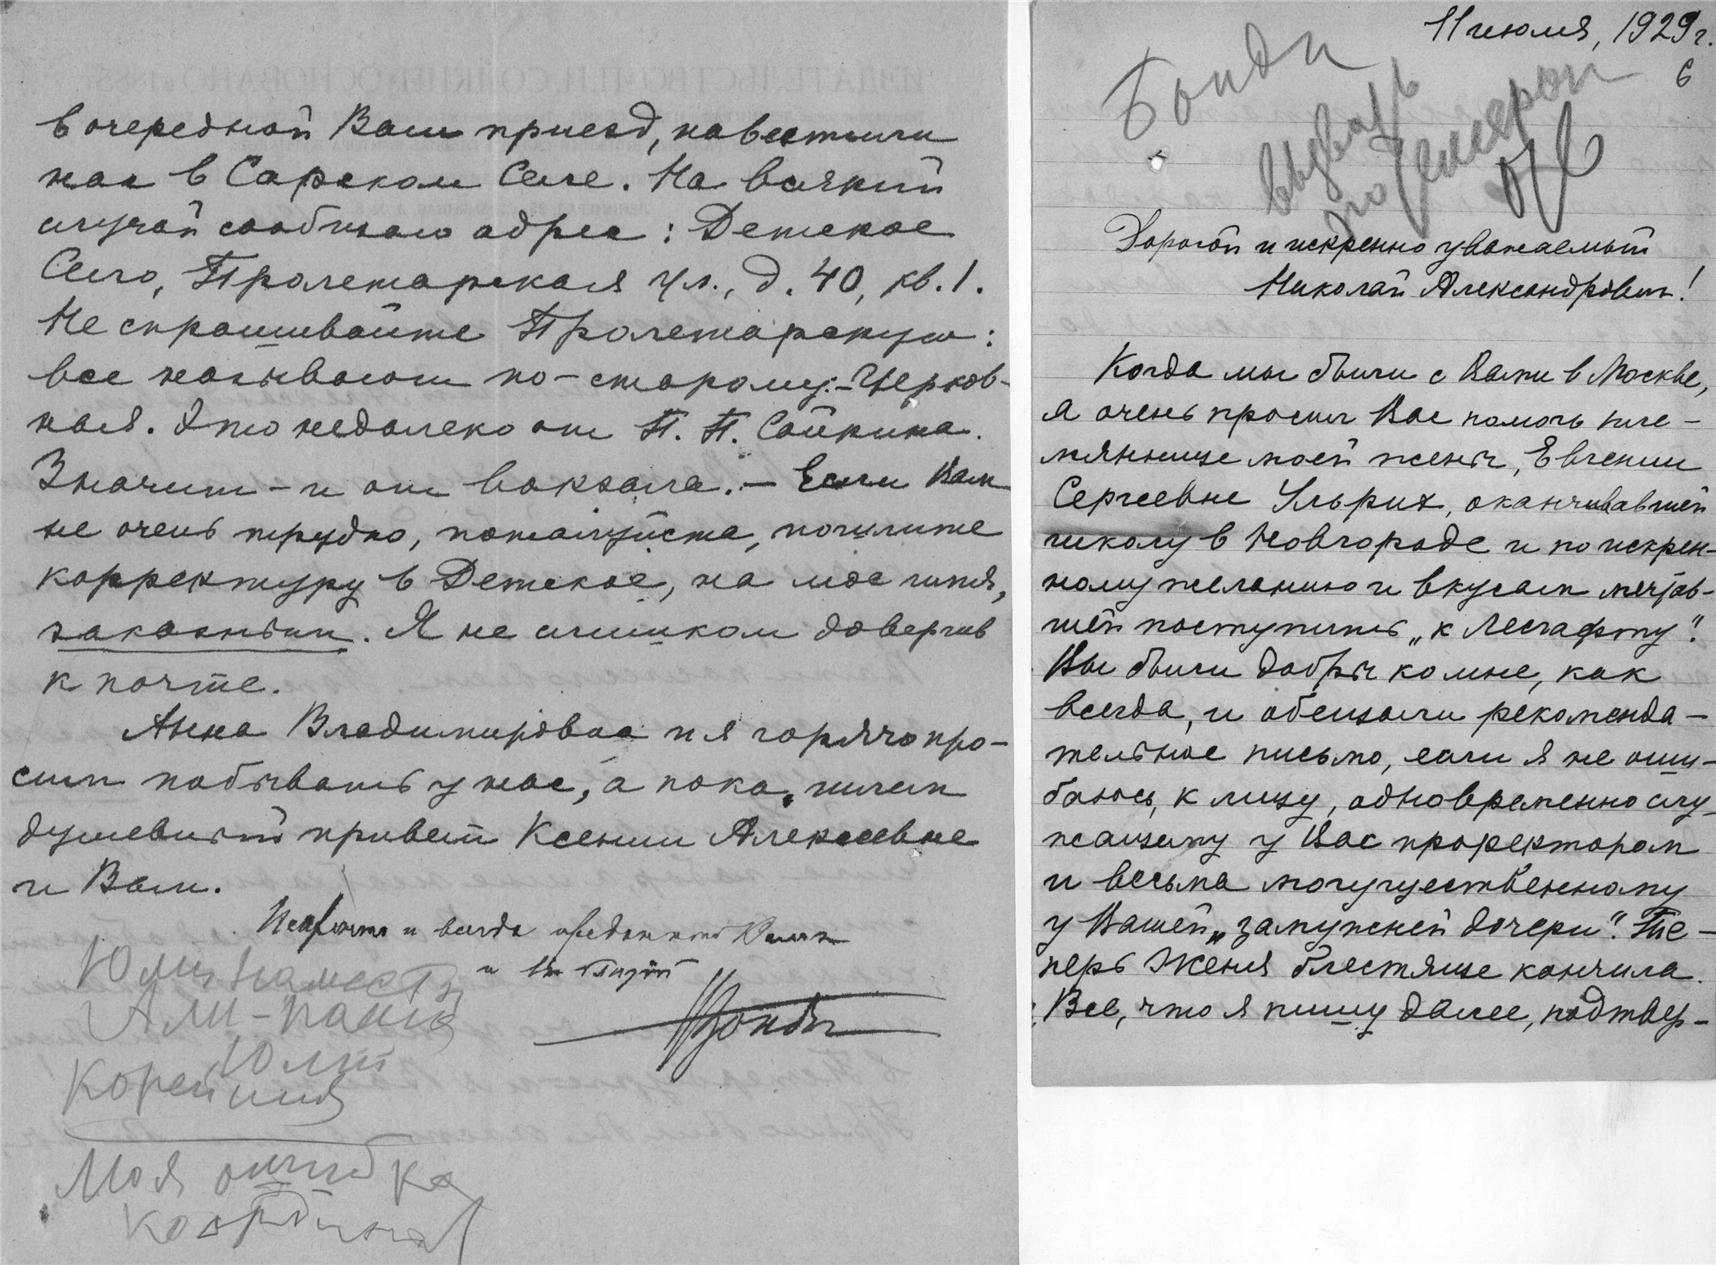 в очередной Ваш приезд, навестили
нас в Сарском Селе. На всякий
случай сообщаю адрес: Детское
Село, Пролетарская ул., д. 40, кв. 1.
Не спрашивайте Пролетарскую:
все называют по-старому: – Церков-
ная. Это недалеко от П. П. Сойкина.
Значит – и от вокзала. – Если Вам
не очень трудно, пожалуйста, пошлите
корректуру в Детское, на мое имя,
заказным. Я не слишком доверчив
к почте.
Анна Владимировна и я горячо про-
сим побывать у нас, а пока, шлем
душевный привет Ксении Алексеевне
и Вам.
Искренно и всегда преданный Вам
и
Бонди
Юлий
Моя ошибка
11 июля, 1929 г.
6
Бонди
Дорогой и искренно уважаемый
Николай Александрович!
Когда мы были с Вами в Москве,
я очень просил Вас помочь пле-
мяннице моей жены, Евгении
Сергеевне Ульрих, оканчивавшей
школу в Новгороде и по искрен-
нему желанию и вкусам мечтав-
шей поступить „к Лесгафту".
Вы были добры ко мне, как
всегда, и обещали рекоменда-
тельное письмо, если я не оши-
баюсь, к лицу, одновременно слу-
жащему у Вас проректором
и весьма могущественному
у Вашей „замужней дочери". Те-
перь Женя блестяще кончила.
Все, что я пишу далее, подтвер-